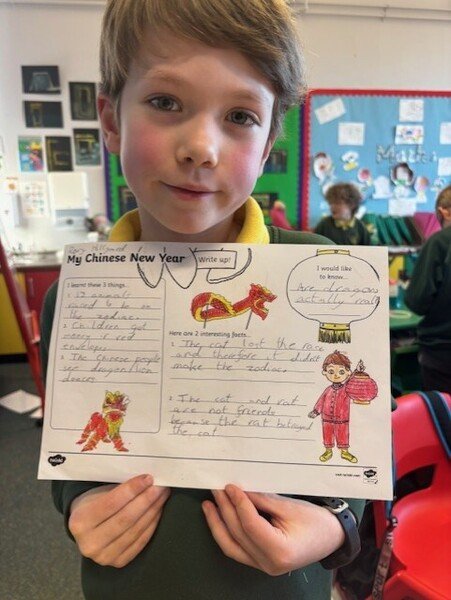 My Chinese New Year
Write up!
I learnt these 3 things...
1. 12 animals
raced to be on
the zodiac.
2. Children get
money in red
envelopes.
3. The Chinese people
see dragon/lion
dances
Here are 2 interesting facts...
1. The cat lost the race
and therefore it didn't
make the zodiac.
2. The cat and rat
are not friends
because the rat betrayed
the cat.
I would like
to know...
Are dragons
actually real
twinkl
visit twinkl.com